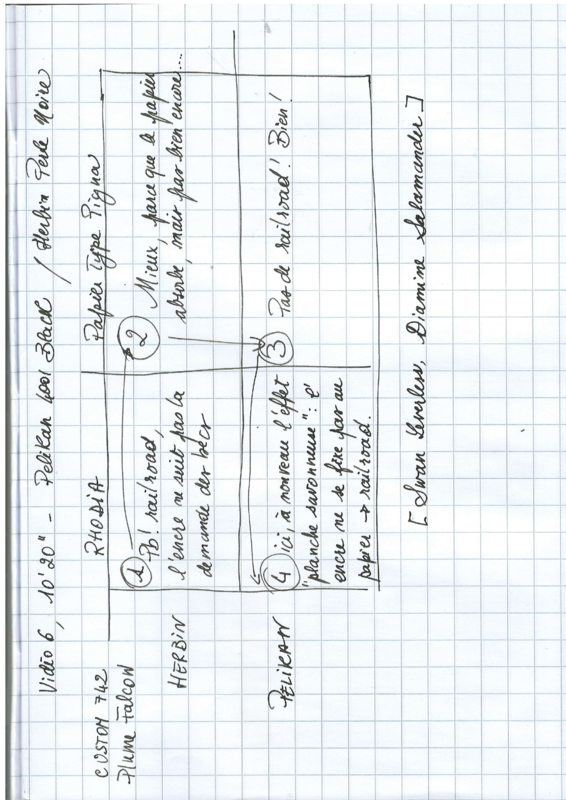 Vidéo 6, 10'20" - Pelikan 4001 Black / Herbin Perle Noire
CUSTOM 742
Plume Falcon
RHODIA
Papier Type Pigna
HERBIN
1
Pb! railroad,
l'encre ne suit pas la
demande des becs
2
Mieux, parce que le papier
absorbe, mais pas bien encore...
PELIKAN
4
ici, à nouveau l'effet
"planche savonneuse": l'
encre ne se fixe pas au
papier → railroad.
3
Pas de railroad! Bien!
[ Swan Leverless, Diamine Salamander ]